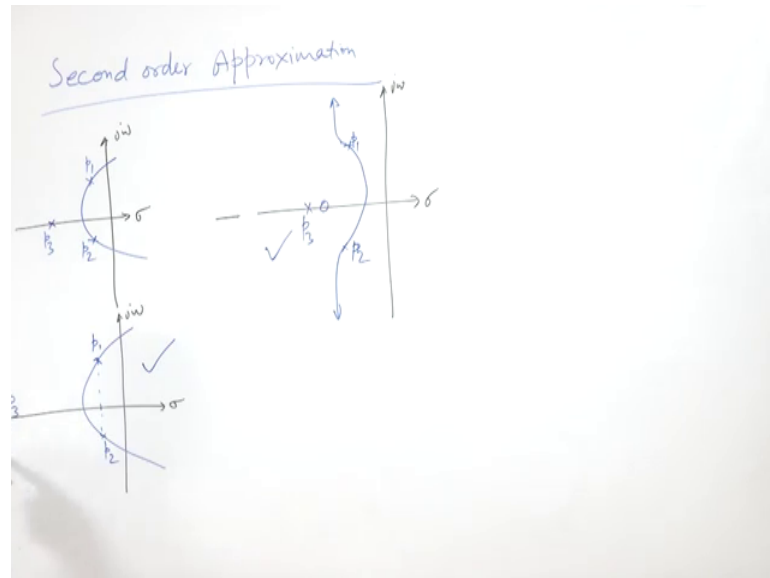 Second order Approximation
jω
p₁
σ
p₃
p₂
jω
p₁
σ
p₃
p₂
jω
p₁
σ
3
p₂